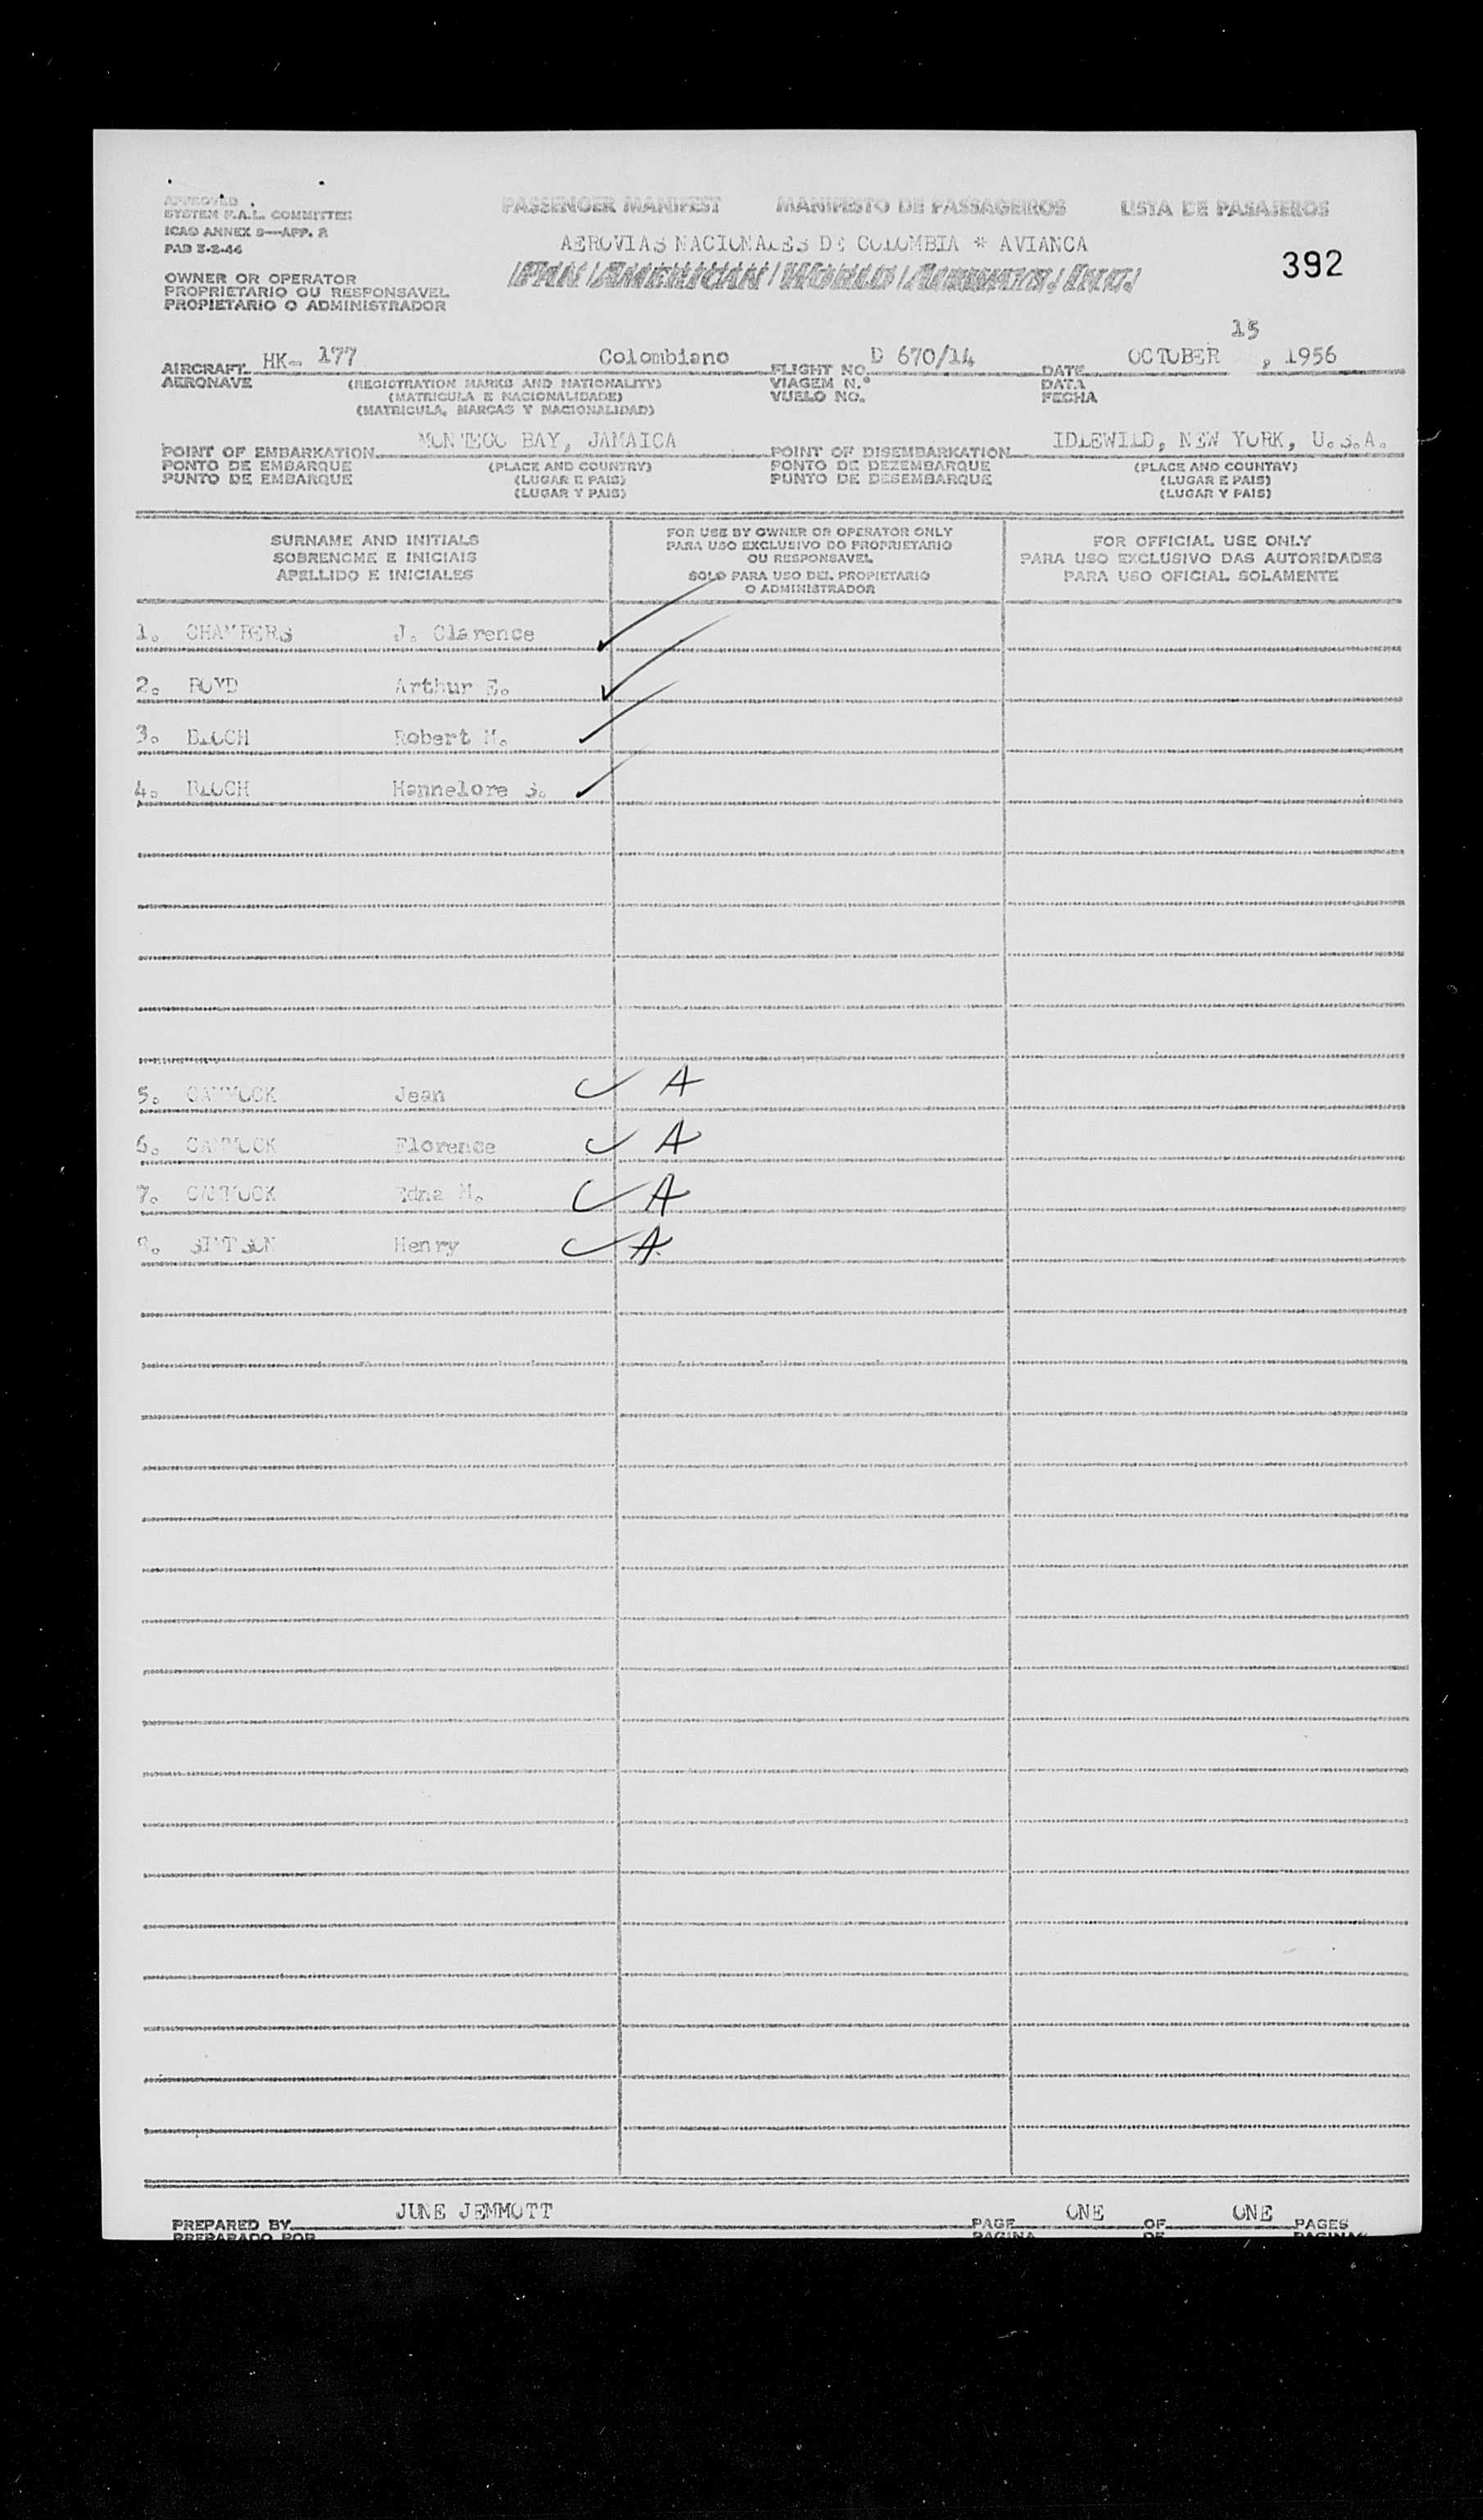 APPROVED
SYSTEM F.A.L. COMMITTEE
ICAO ANNEX 9—APP. 2
PAD 5-2-46
PASSENGER MANIFEST MANIFESTO DE PASSAGEIROS LISTA DE PASAJEROS
AEROVIAS NACIONALES DE COLOMBIA * AVIANCA
PAN AMERICAN WORLD AIRWAYS, INC.
392
OWNER OR OPERATOR
PROPRIETARIO OU RESPONSAVEL
PROPIETARIO O ADMINISTRADOR
15
AIRCRAFT HK- 177 Colombiano FLIGHT NO. D 670/14 DATE OCTOBER , 1956
AERONAVE (REGISTRATION MARKS AND NATIONALITY) VIAGEM N.º DATA
(MATRICULA E NACIONALIDADE) VUELO NO. FECHA
(MATRICULA, MARCAS Y NACIONALIDAD)
POINT OF EMBARKATION MONTEGO BAY, JAMAICA POINT OF DISEMBARKATION IDLEWILD, NEW YORK, U.S.A.
PONTO DE EMBARQUE (PLACE AND COUNTRY) PONTO DE DEZEMBARQUE (PLACE AND COUNTRY)
PUNTO DE EMBARQUE (LUGAR E PAIS) PUNTO DE DESEMBARQUE (LUGAR E PAIS)
(LUGAR Y PAIS) (LUGAR Y PAIS)
SURNAME AND INITIALS
SOBRENOME E INICIAIS
APELLIDO E INICIALES
FOR USE BY OWNER OR OPERATOR ONLY
PARA USO EXCLUSIVO DO PROPRIETARIO
OU RESPONSAVEL
SOLO PARA USO DEL PROPIETARIO
O ADMINISTRADOR
FOR OFFICIAL USE ONLY
PARA USO EXCLUSIVO DAS AUTORIDADES
PARA USO OFICIAL SOLAMENTE
1. CHAMBERS J. Clarence
2. BOYD Arthur E.
3. BLOCH Robert M.
4. BLOCH Hannelore S.
5. Jean A
6. Florence A
7. Edna M. A
8. SIMPSON Henry A
PREPARED BY JUNE JEMMOTT PAGE ONE OF ONE PAGES
PREPARADO POR PAGINA DE PAGINAS